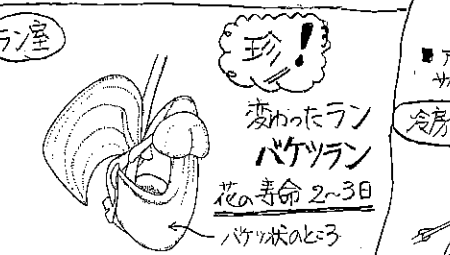 ラン室
珍!
変わったラン
バケツラン
花の寿命 2〜3日
バケツ状のところ
冷房